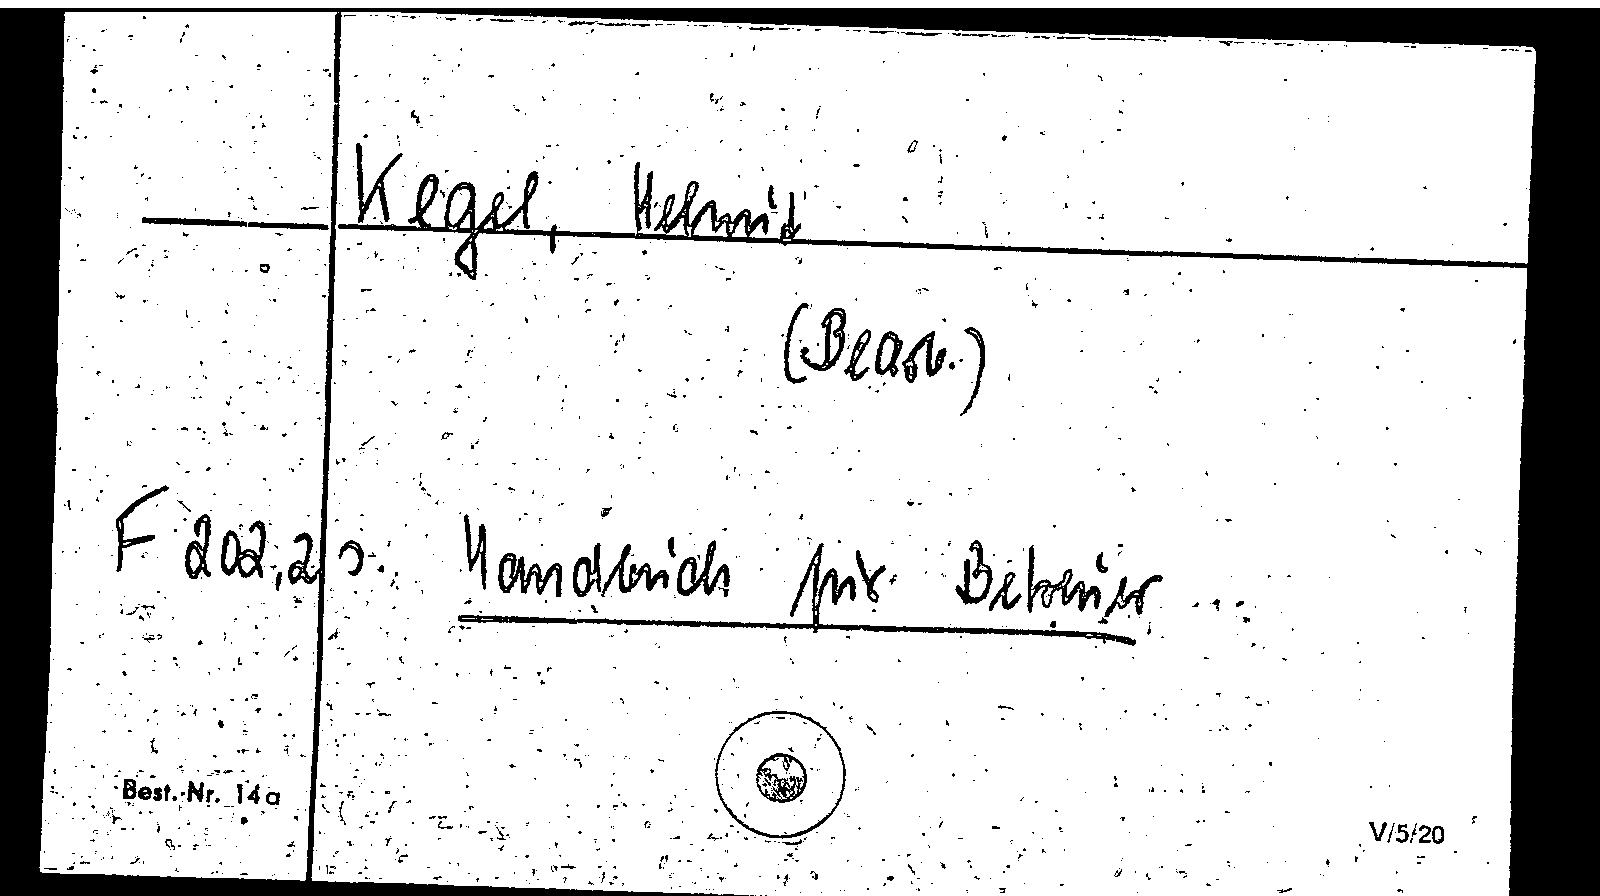 Kegel, Helmut
(Bearb.)
F 202,2 s. Handbuch für Betreuer
Best.-Nr. 14a
V/5/20